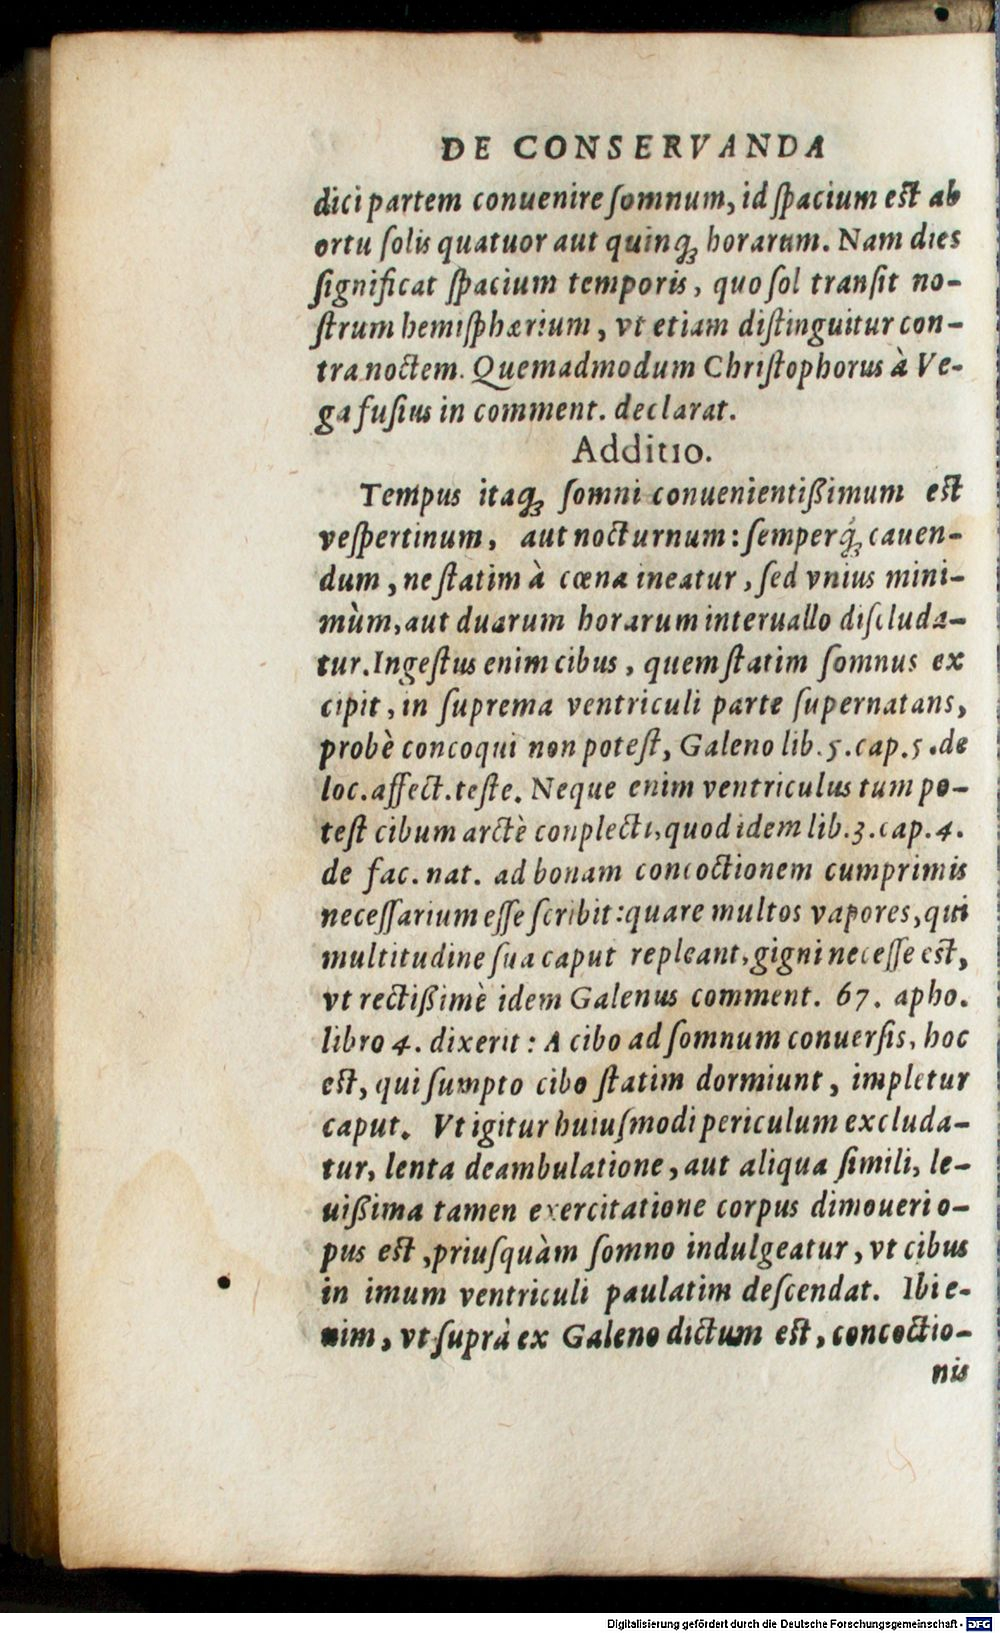 DE CONSERVANDA
dici partem conuenire ſomnum, id ſpacium eſt ab
ortu ſolis quatuor aut quinqꝫ horarum. Nam dies
ſignificat ſpacium temporis, quo ſol tranſit no-
ſtrum hemiſphærium, vt etiam diſtinguitur con-
tra noctem. Quemadmodum Chriſtophorus à Ve-
ga fuſius in comment. declarat.
Additio.
Tempus itaqꝫ ſomni conuenientißimum eſt
veſpertinum, aut nocturnum: ſemperq́ꝫ cauen-
dum, ne ſtatim à cœna ineatur, ſed vnius mini-
mùm, aut duarum horarum interuallo diſcluda-
tur. Ingeſtus enim cibus, quem ſtatim ſomnus ex
cipit, in ſuprema ventriculi parte ſupernatans,
probè concoqui non poteſt, Galeno lib. 5. cap. 5. de
loc. affect. teſte. Neque enim ventriculus tum po-
teſt cibum arctè conplecti, quod idem lib. 3. cap. 4.
de fac. nat. ad bonam concoctionem cumprimis
neceſſarium eſſe ſcribit: quare multos vapores, qui
multitudine ſua caput repleant, gigni neceſſe eſt,
vt rectißimè idem Galenus comment. 67. apho.
libro 4. dixerit: A cibo ad ſomnum conuerſis, hoc
eſt, qui ſumpto cibo ſtatim dormiunt, impletur
caput. Vt igitur huiuſmodi periculum excluda-
tur, lenta deambulatione, aut aliqua ſimili, le-
uißima tamen exercitatione corpus dimoueri o-
pus eſt, priuſquàm ſomno indulgeatur, vt cibus
in imum ventriculi paulatim deſcendat. Ibi e-
nim, vt ſuprà ex Galeno dictum eſt, concoctio-
nis
Digitalisierung gefördert durch die Deutsche Forschungsgemeinschaft - DFG